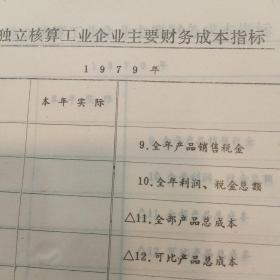 独立核算工业企业主要财务成本指标
1979年
本年实际
9.全年产品销售税金
10.全年利润、税金总额
△11.全部产品总成本
△12.可比产品总成本